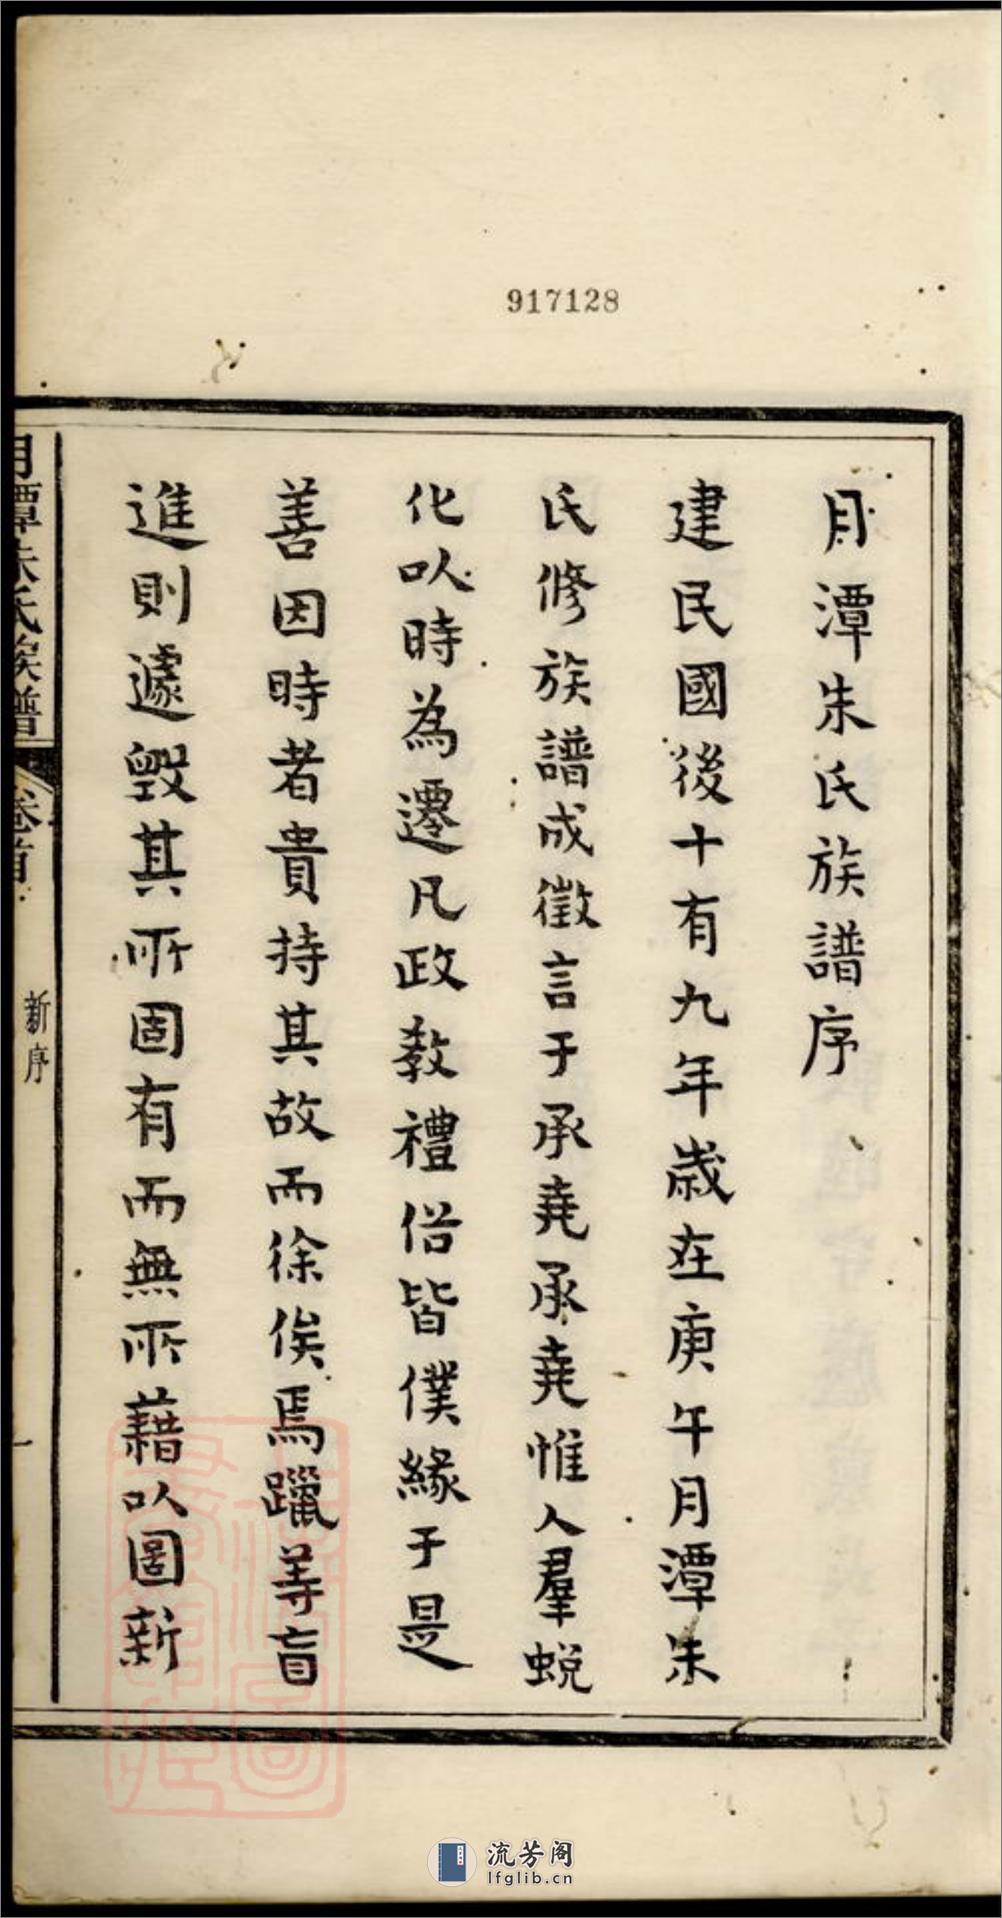 917128
月潭朱氏族譜序
建民國後十有九年歲在庚午月潭朱
氏修族譜成徵言于承堯承堯惟人羣蛻
化以時為遷凡政教禮俗皆僕緣于是
善因時者貴持其故而徐俟焉躐等盲
進則遽毀其所固有而無所藉以圖新
月潭朱氏族譜 卷首 新序 一
流芳阁
lfglib.cn